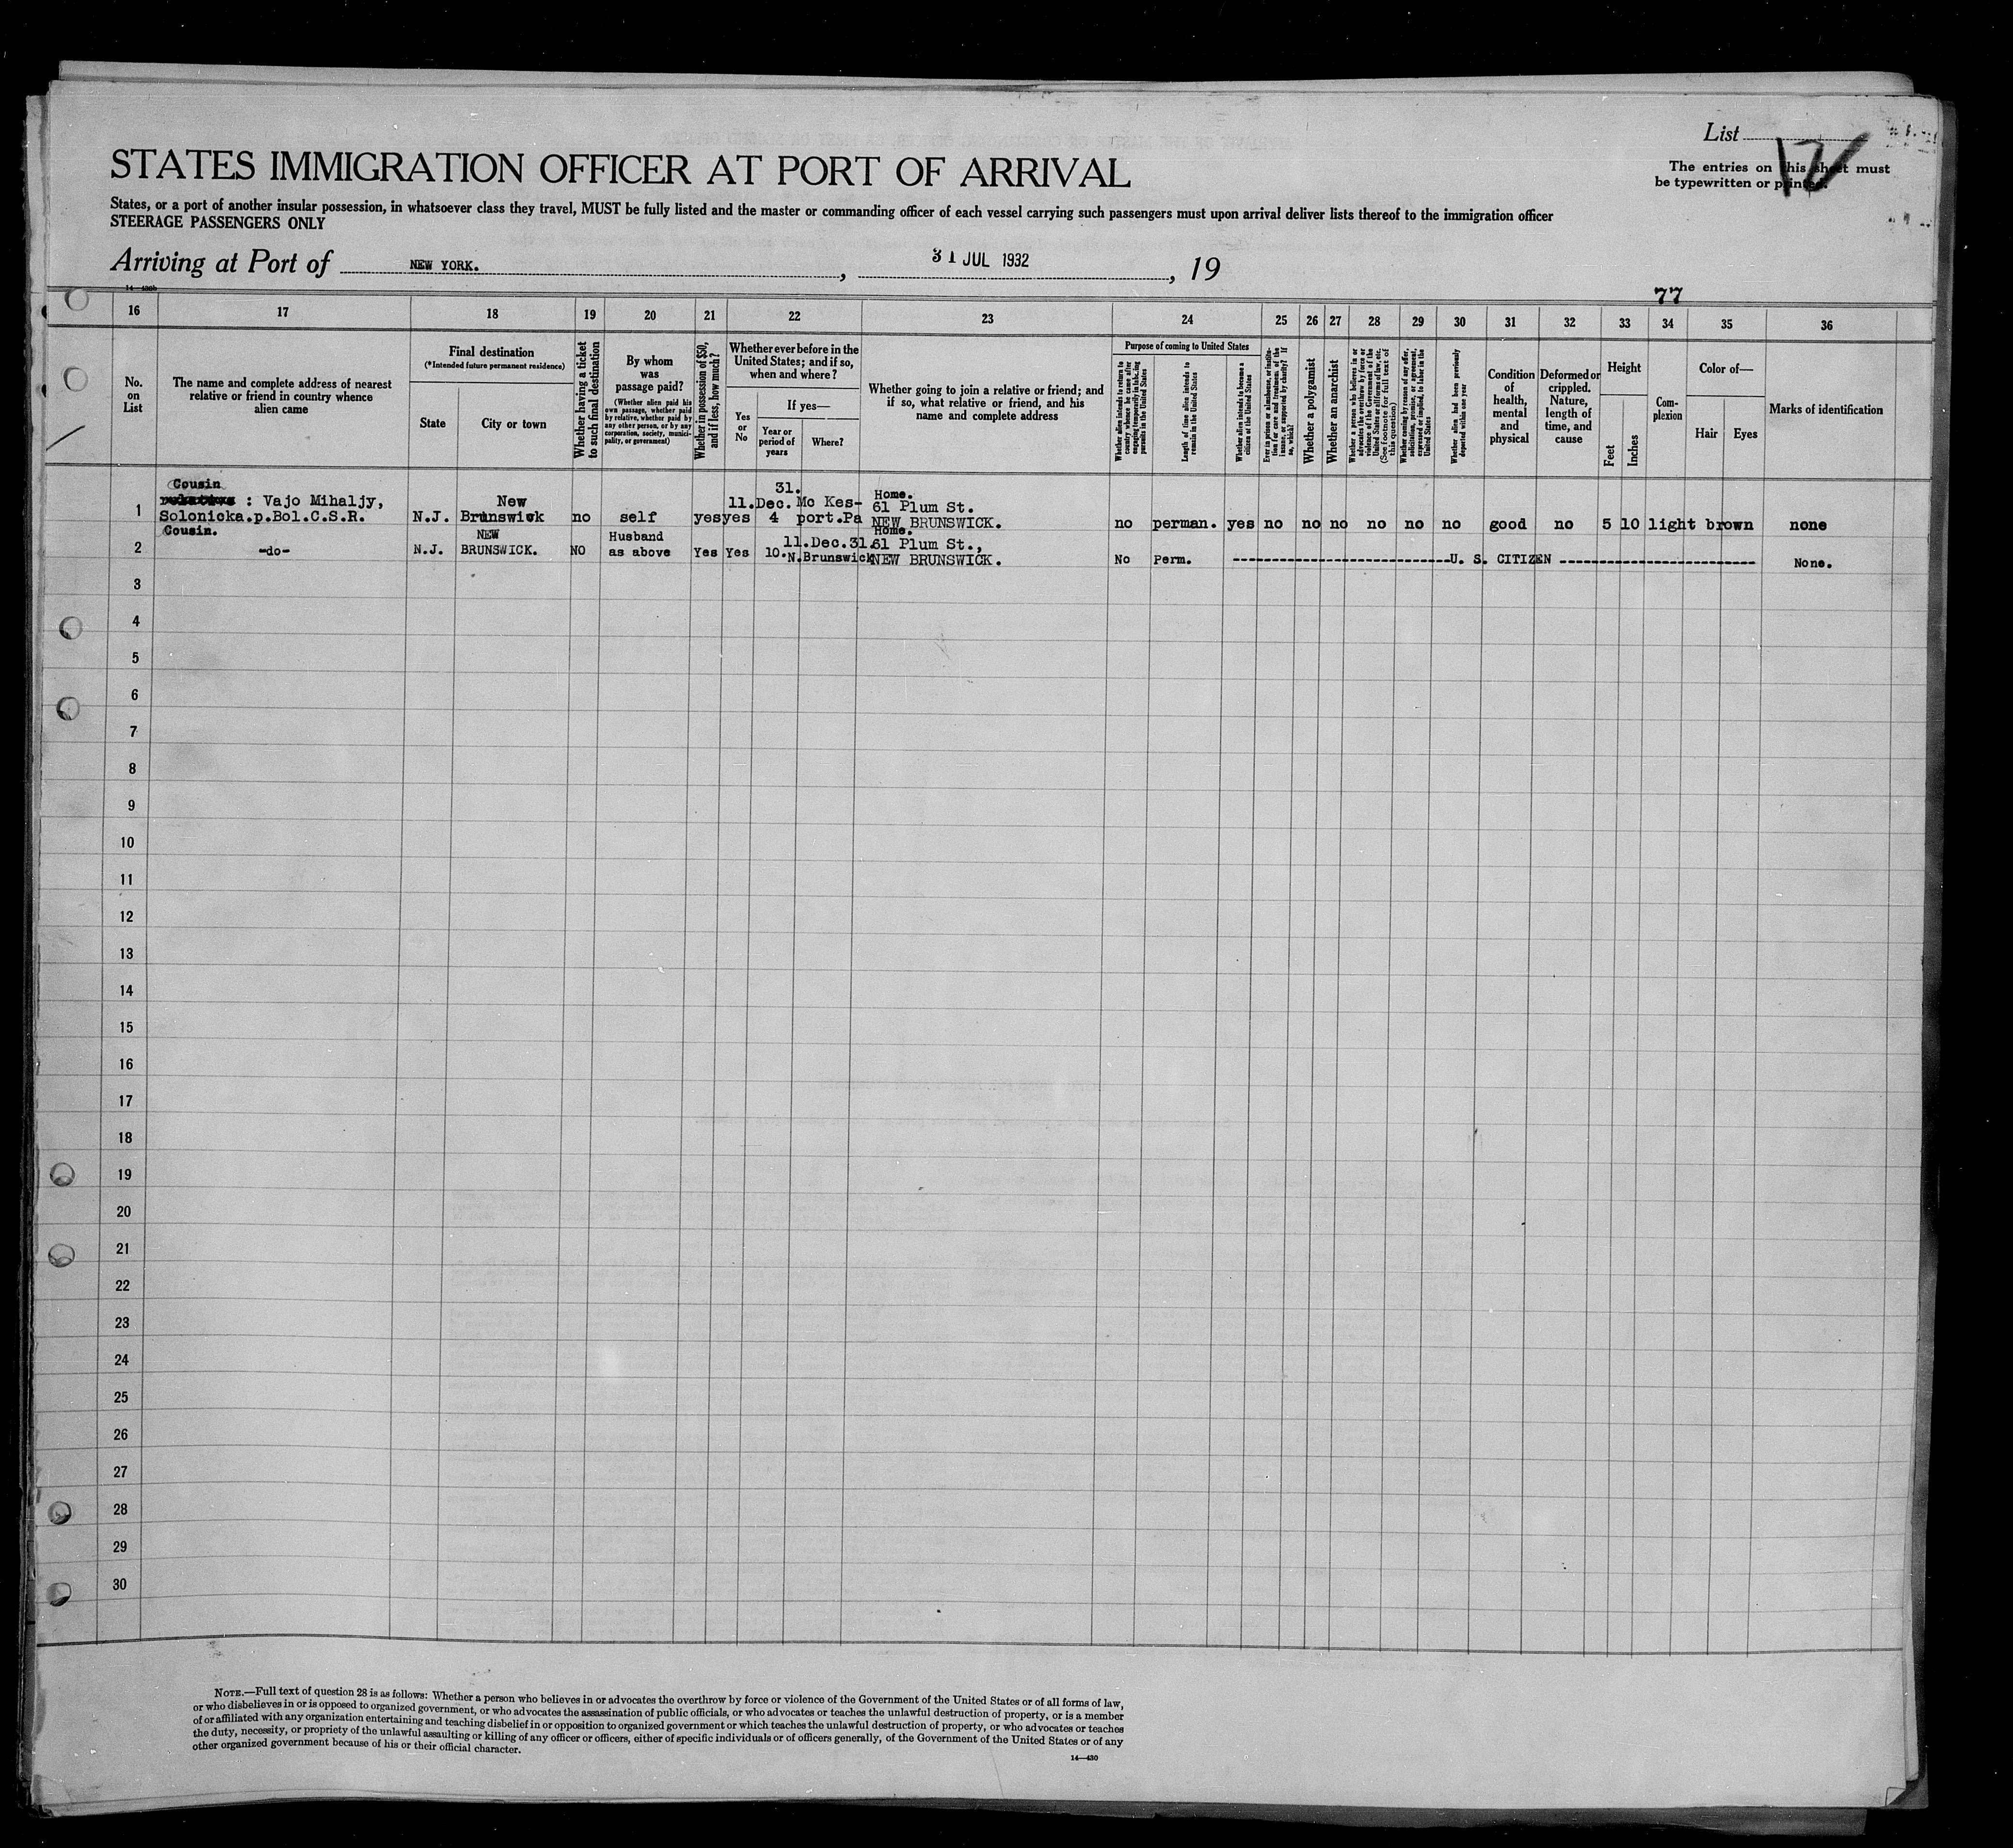 List
The entries on this sheet must
be typewritten or printed.
STATES IMMIGRATION OFFICER AT PORT OF ARRIVAL
States, or a port of another insular possession, in whatsoever class they travel, MUST be fully listed and the master or commanding officer of each vessel carrying such passengers must upon arrival deliver lists thereof to the immigration officer
STEERAGE PASSENGERS ONLY
Arriving at Port of NEW YORK. , 31 JUL 1932 , 19
77
16 17 18 19 20 21 22 23 24 25 26 27 28 29 30 31 32 33 34 35 36
No.
on
List
The name and complete address of nearest
relative or friend in country whence
alien came
Final destination
(*Intended future permanent residence)
State
City or town
Whether having a ticket
to such final destination
By whom
was
passage paid?
(Whether alien paid his
own passage, whether paid
by relative, whether paid by
any other person, or by any
corporation, society, munici-
pality, or government)
Whether in possession of $50,
and if less, how much?
Whether ever before in the
United States; and if so,
when and where?
Yes
or
No
If yes—
Year or
period of
years
Where?
Whether going to join a relative or friend; and
if so, what relative or friend, and his
name and complete address
Purpose of coming to United States
Whether alien intends to return to
country whence he came after
engaging temporarily in laboring
pursuits in the United States
Length of time alien intends to
remain in the United States
Whether alien intends to become a
citizen of the United States
Ever in prison or almshouse, or institu-
tion for care and treatment of the
insane, or supported by charity? If
so, which?
Whether a polygamist
Whether an anarchist
Whether a person who believes in or
advocates the overthrow by force or
violence of the Government of the
United States or all forms of law, etc.
(See footnote for full text of
this question)
Whether coming by reason of any offer,
solicitation, promise, or agreement,
expressed or implied, to labor in the
United States
Whether alien had been previously
deported within one year
Condition
of
health,
mental
and
physical
Deformed or
crippled.
Nature,
length of
time, and
cause
Height
Feet
Inches
Com-
plexion
Color of—
Hair
Eyes
Marks of identification
Cousin 31.
: Vajo Mihaljy, New 11.Dec. Mc Kes- Home. 61 Plum St.
1 Solonicka.p.Bol.C.S.R. N.J. Brunswick no self yes yes 4 port.Pa NEW BRUNSWICK. no perman. yes no no no no no no good no 5 10 light brown none
Cousin. NEW Husband 11.Dec.31. Home. 61 Plum St.,
2 -do- N.J. BRUNSWICK. NO as above Yes Yes 10. N.Brunswick NEW BRUNSWICK. No Perm. U. S. CITIZEN None.
3
4
5
6
7
8
9
10
11
12
13
14
15
16
17
18
19
20
21
22
23
24
25
26
27
28
29
30
NOTE.—Full text of question 28 is as follows: Whether a person who believes in or advocates the overthrow by force or violence of the Government of the United States or of all forms of law,
or who disbelieves in or is opposed to organized government, or who advocates the assassination of public officials, or who advocates or teaches the unlawful destruction of property, or is a member
of or affiliated with any organization entertaining and teaching disbelief in or opposition to organized government or which teaches the unlawful destruction of property, or who advocates or teaches
the duty, necessity, or propriety of the unlawful assaulting or killing of any officer or officers, either of specific individuals or of officers generally, of the Government of the United States or of any
other organized government because of his or their official character.
14—430